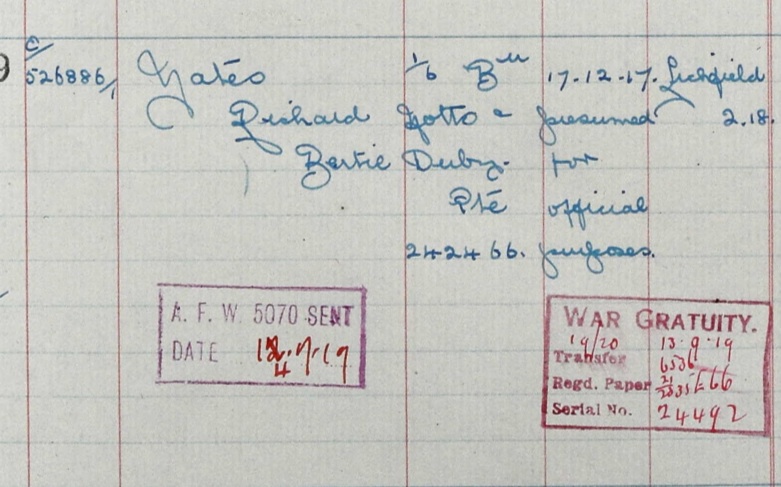 9 C/ 526886/1 Yates 1/6 Bn 17-12-17. Lichfield
Richard Notts & presumed 2.18.
Bertie Derby. for
Pte official
242466. purposes.
A. F. W. 5070 SENT
DATE 12.9.19
4
WAR GRATUITY.
19/20 13.9.19
Transfer 6536
Regd. Paper E66
Serial No. 24492